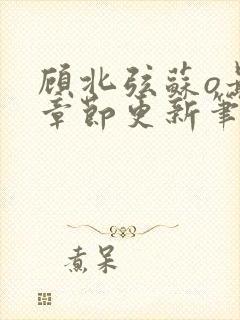 顾北弦蘇o
章節更新筆
煮呆